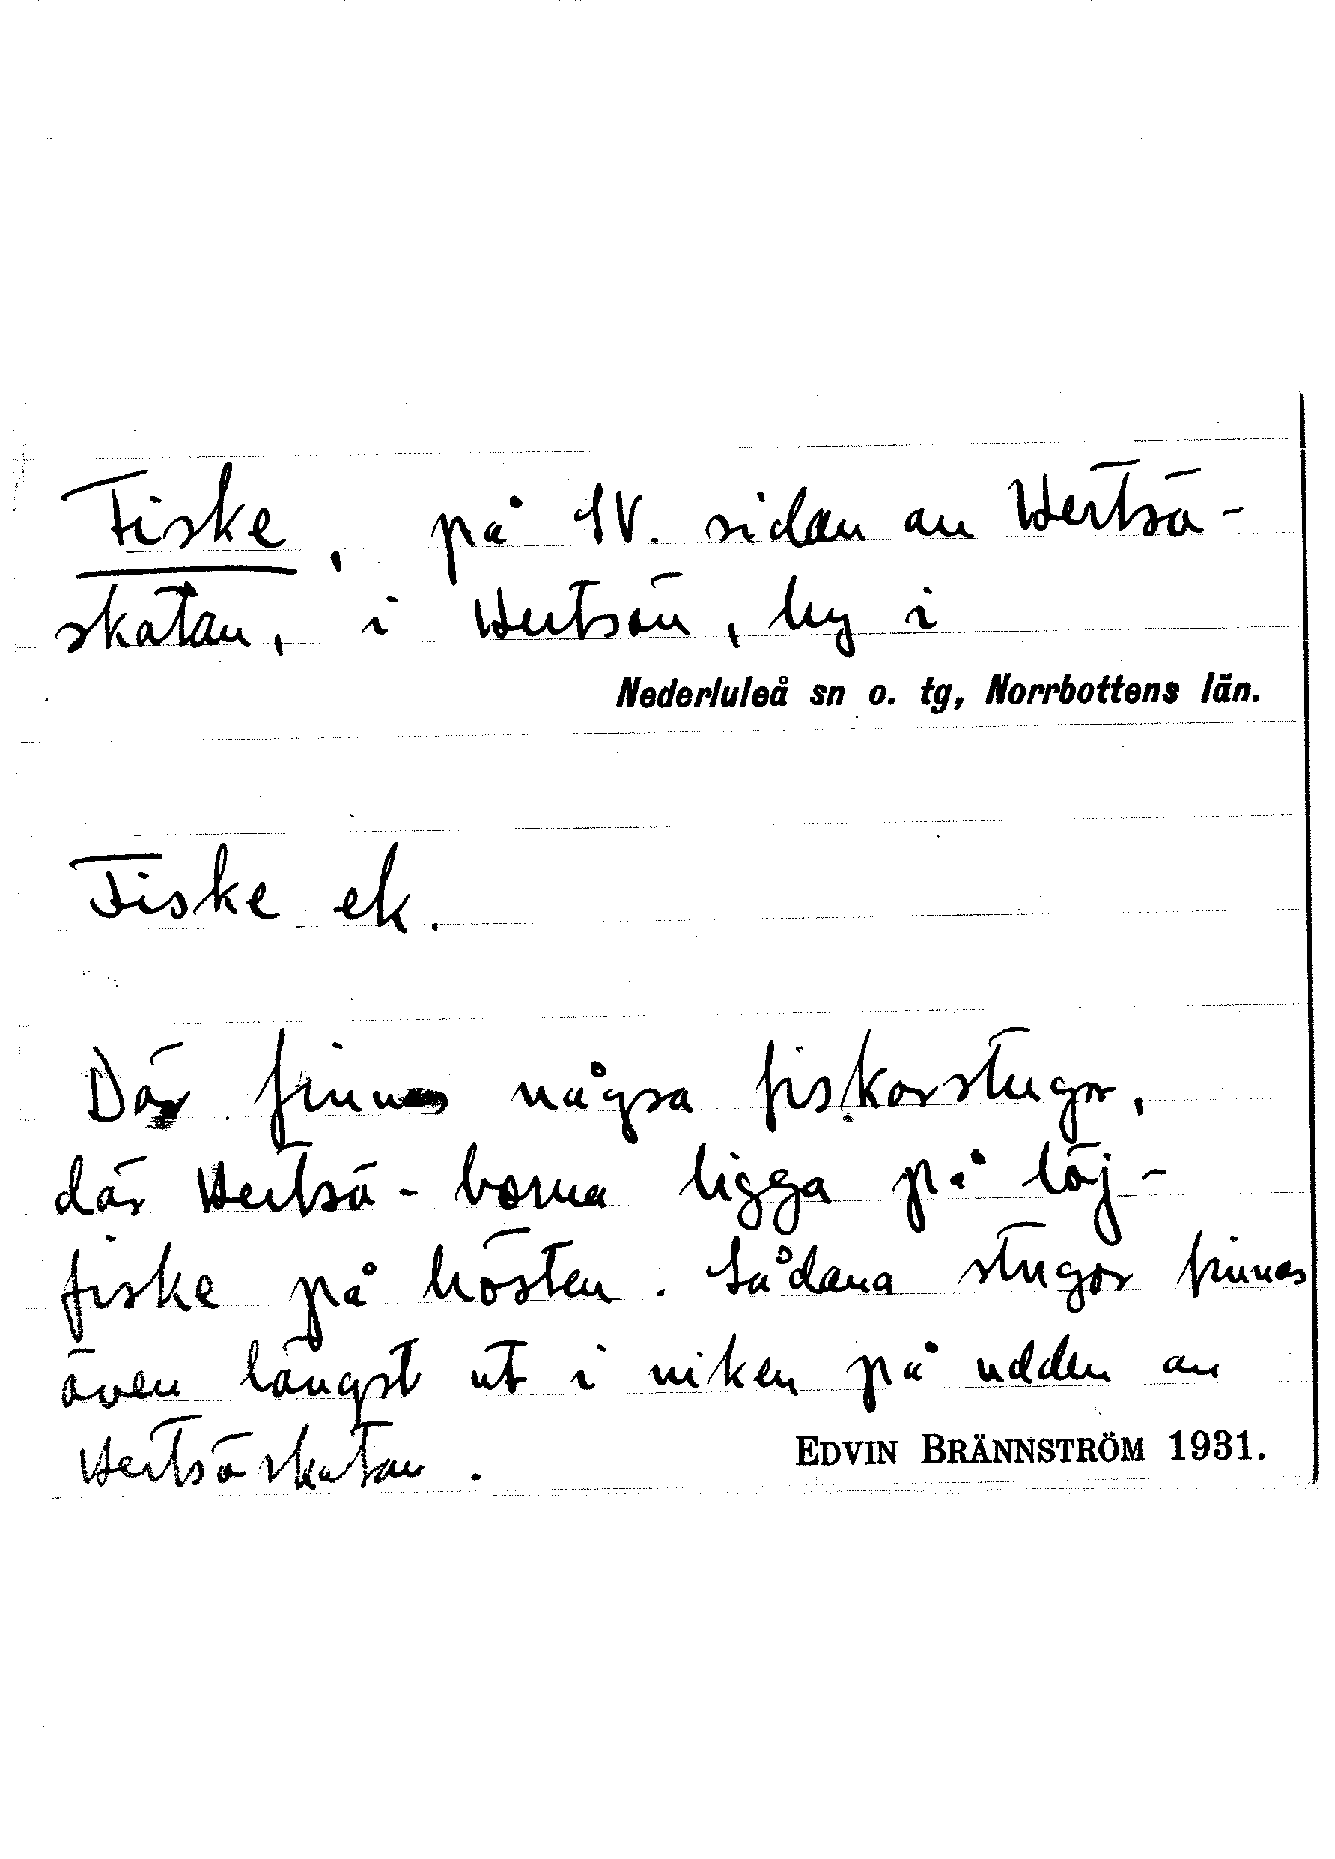 Fiske, på SV. sidan av Hertsö-
skatan, i Hertsön, by i
Nederluleå sn o. tg, Norrbottens län.
Fiske ek.
Där finnes några fiskarstugor,
där Hertsö-borna ligga på löj-
fiske på hösten. Sådana stugor finnes
även längst ut i viken på udden av
Hertsöskatan.
EDVIN BRÄNNSTRÖM 1931.